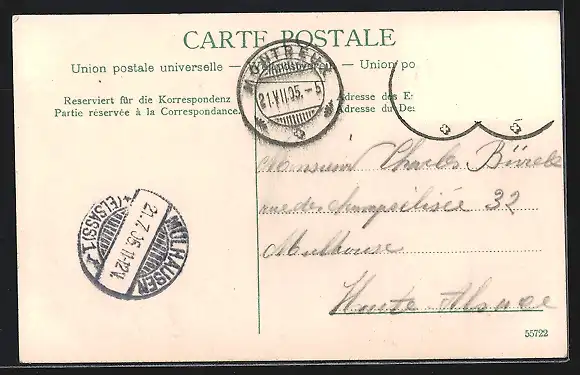 CARTE POSTALE
Union postale universelle — Union po
Reserviert für die Korrespondenz
Partie réservée à la Correspondance.
Adresse des E
Adresse du De
MONTREUX
21.VII.05.-5
MÜLHAUSEN
21.7.05.11-12V.
*(ELSASS)1*
Monsieur Charles
rue des champs élisée 32
Mulhouse
Haute-Alsace
55722